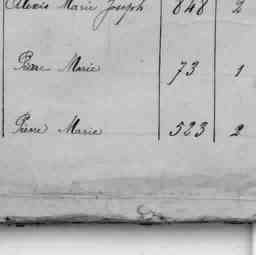 Alexis Marie Joseph 848 2
Pierre Marie 73 1
Pierre Marie 523 2